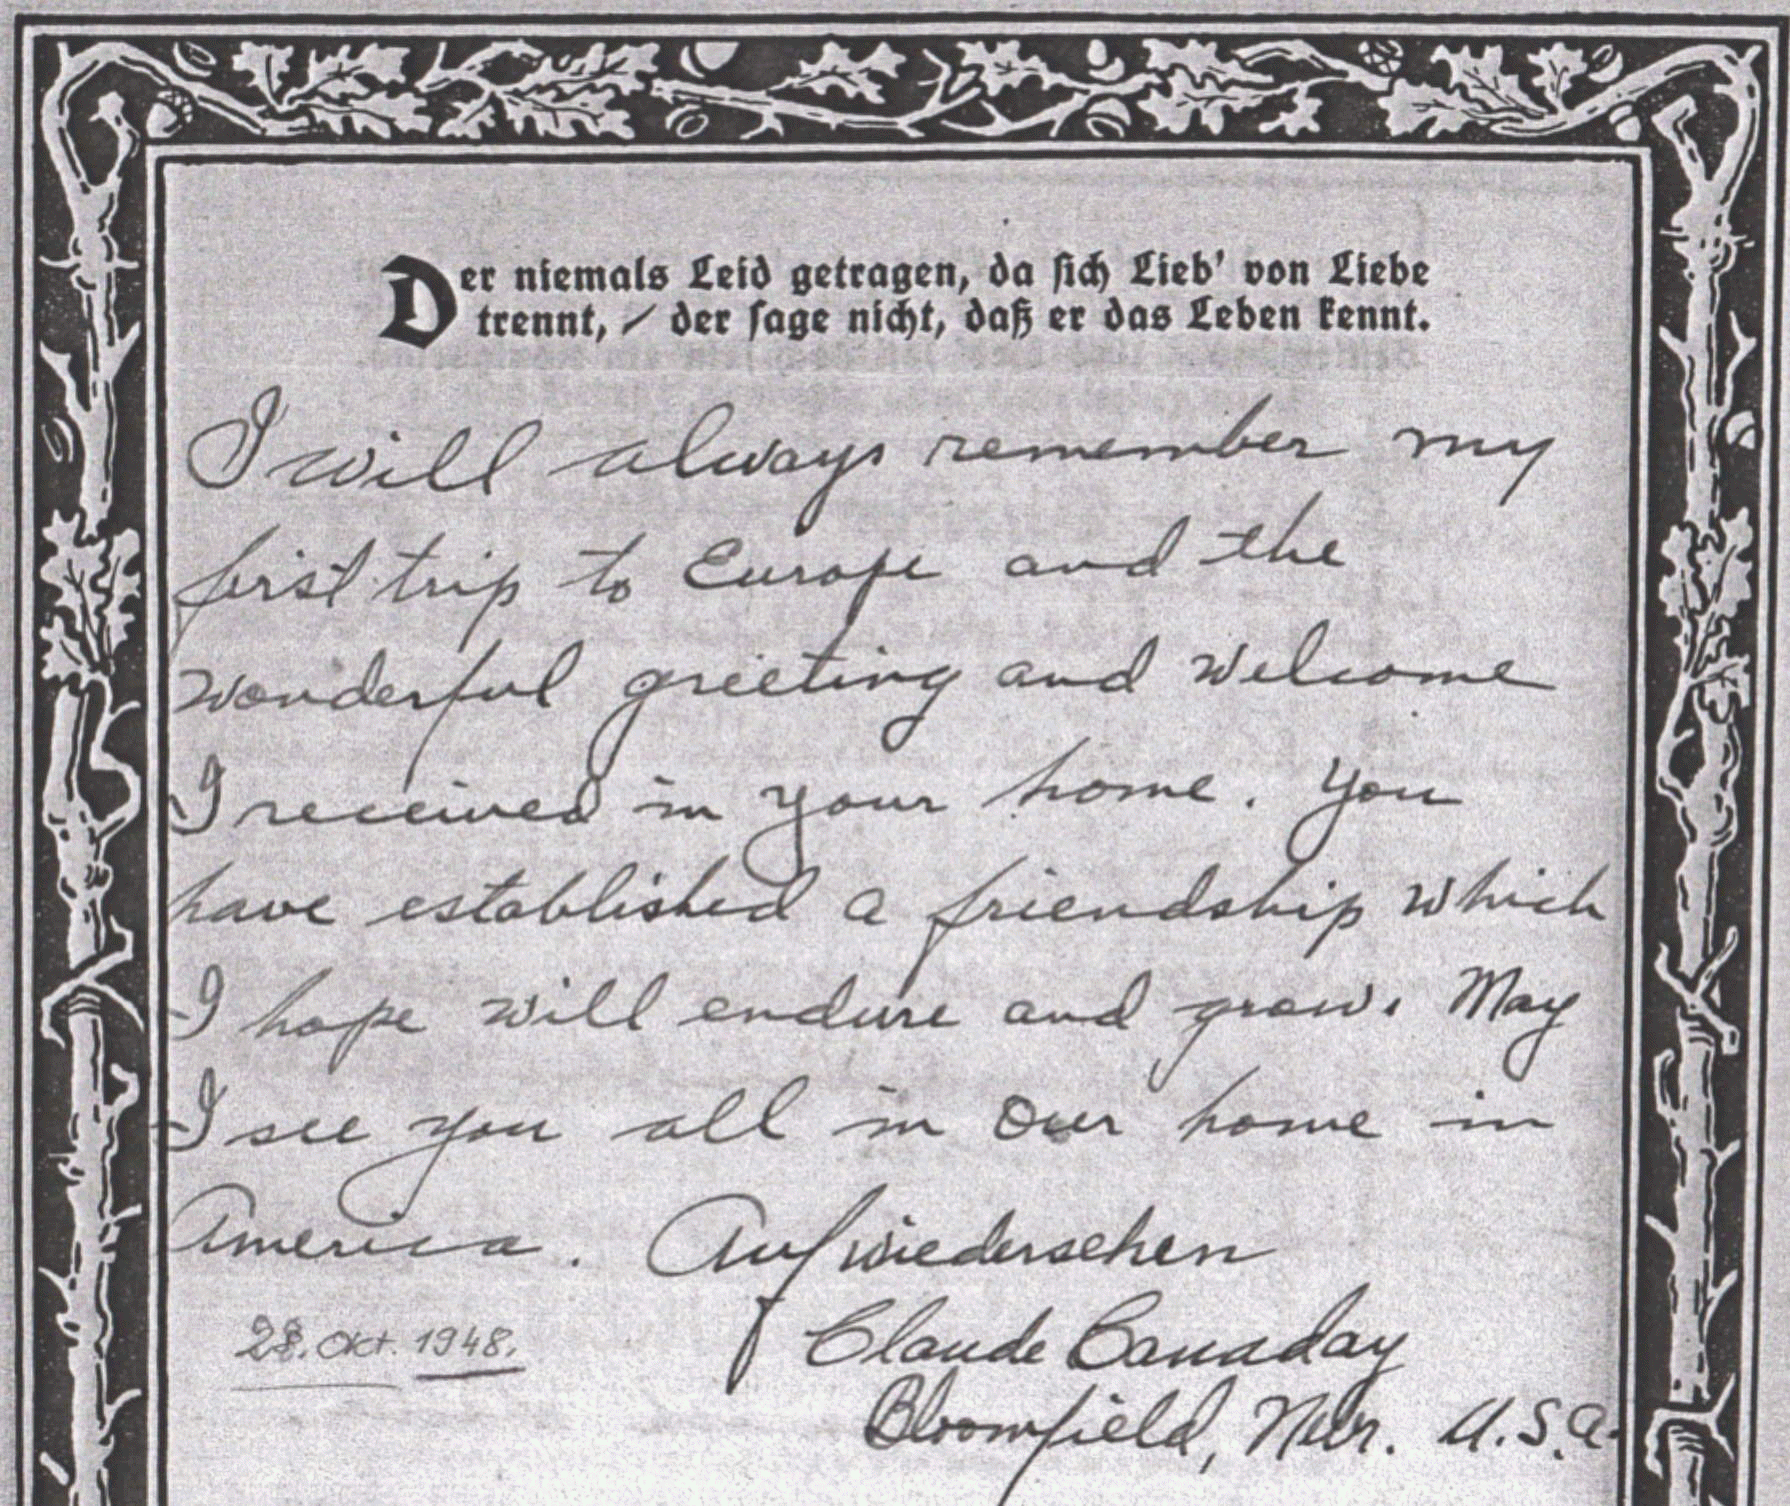 Der niemals Leid getragen, da sich Lieb' von Liebe
trennt, / der sage nicht, daß er das Leben kennt.
I will always remember my
first trip to Europe and the
wonderful greeting and welcome
I received in your home. You
have established a friendship which
I hope will endure and grow. May
I see you all in our home in
America. Auf wiedersehen
28. Okt. 1948.
Claude Canaday
Bloomfield, U.S.A.